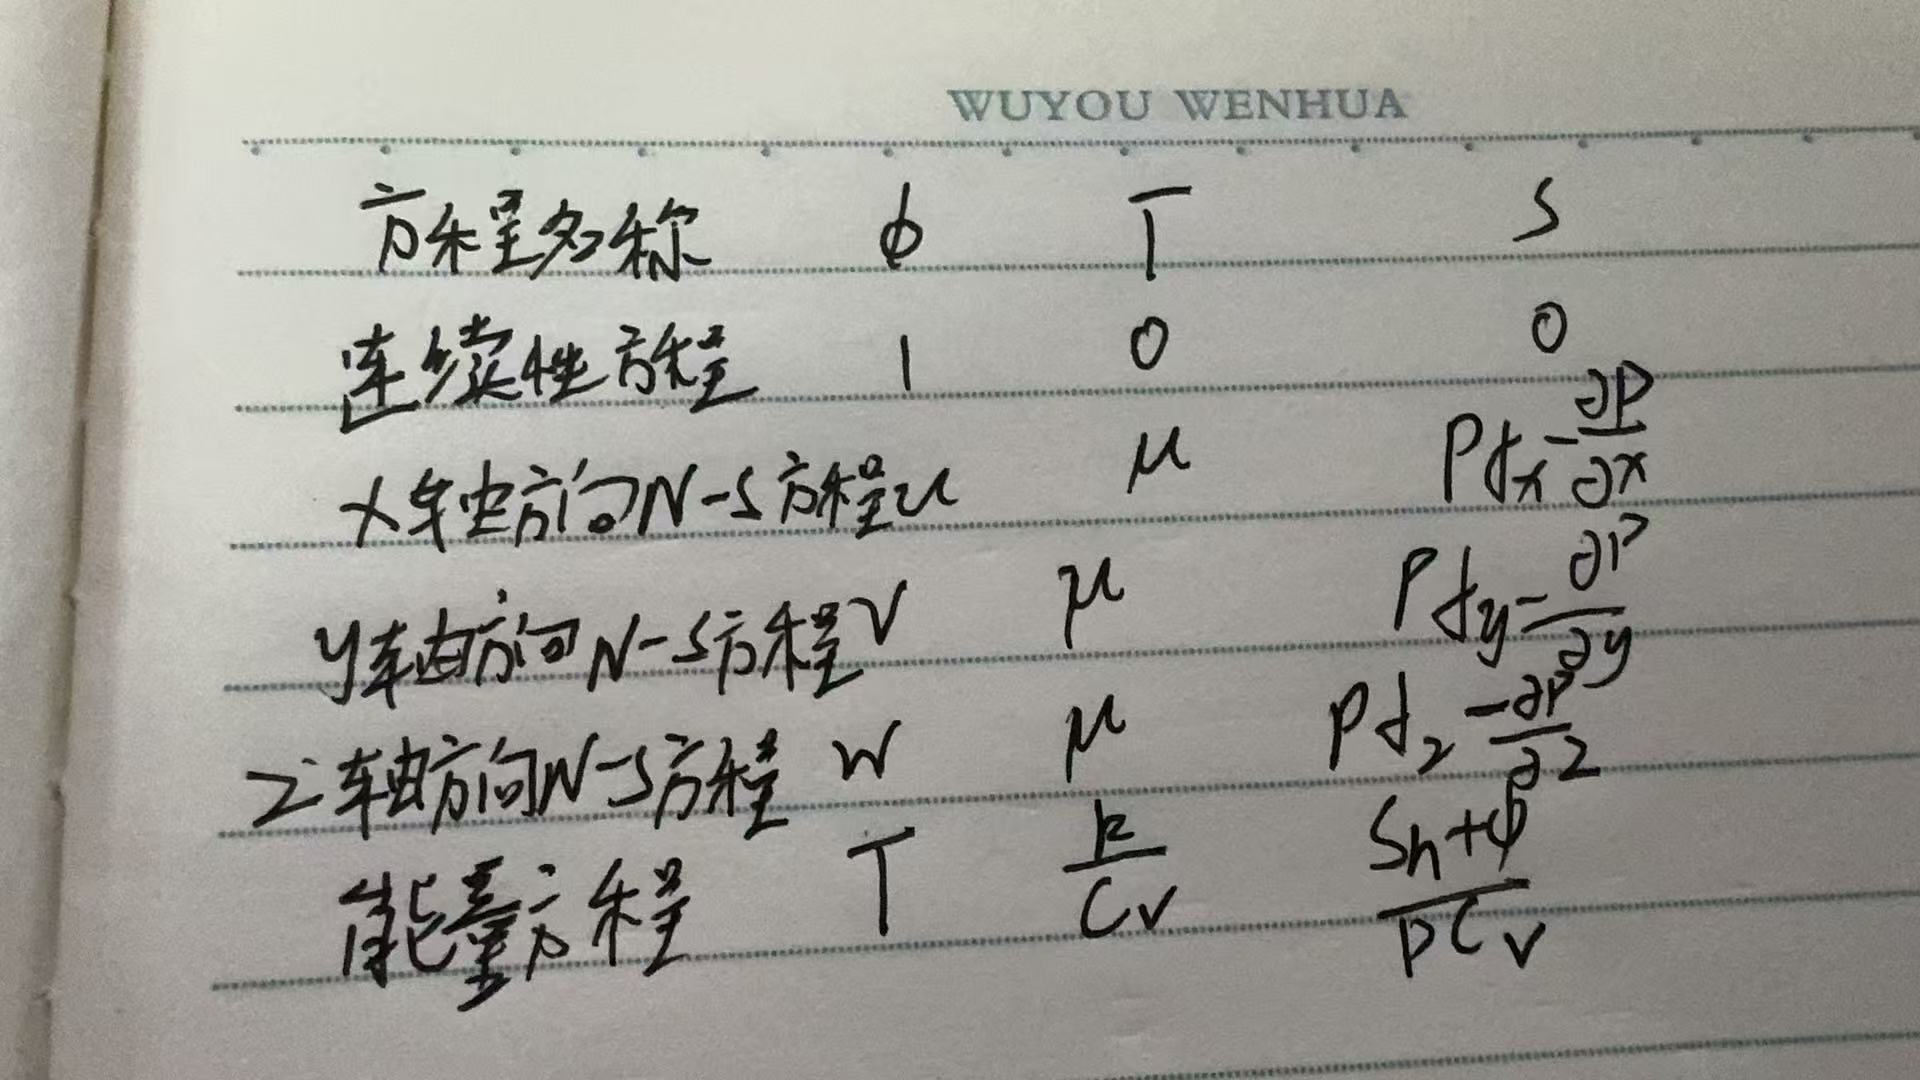 WUYOU WENHUA
方程名称 ϕ Γ S
连续性方程 1 0 0
x轴方向N-S方程 u μ ρfx-∂P/∂x
y轴方向N-S方程 v μ ρfy-∂P/∂y
z轴方向N-S方程 w μ ρfz-∂P/∂z
能量方程 T k/Cv Sh+ϕ/ρCv